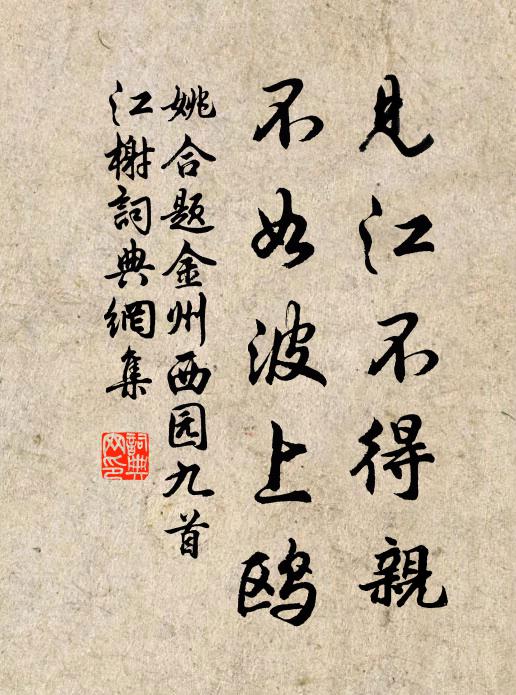 見江不得親
不如波上鸥
姚合题金州西园九首
江榭詞典網集
詞典网印